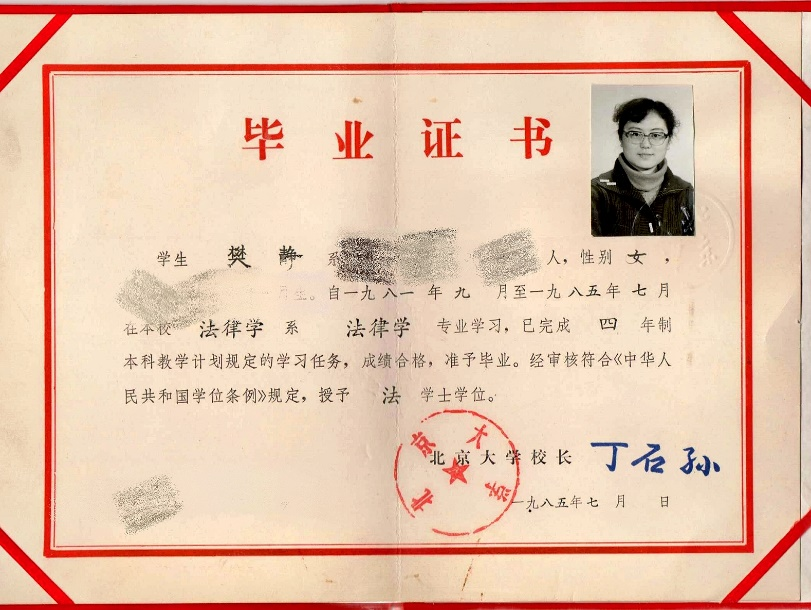 毕业证书
学生 樊静 系 人，性别 女，
生。自一九八一年九月至一九八五年七月
在本校 法律学 系 法律学 专业学习，已完成 四 年制
本科教学计划规定的学习任务，成绩合格，准予毕业。经审核符合《中华人
民共和国学位条例》规定，授予 法 学士学位。
北京大学校长 丁石孙
北京大学
一九八五年七月 日